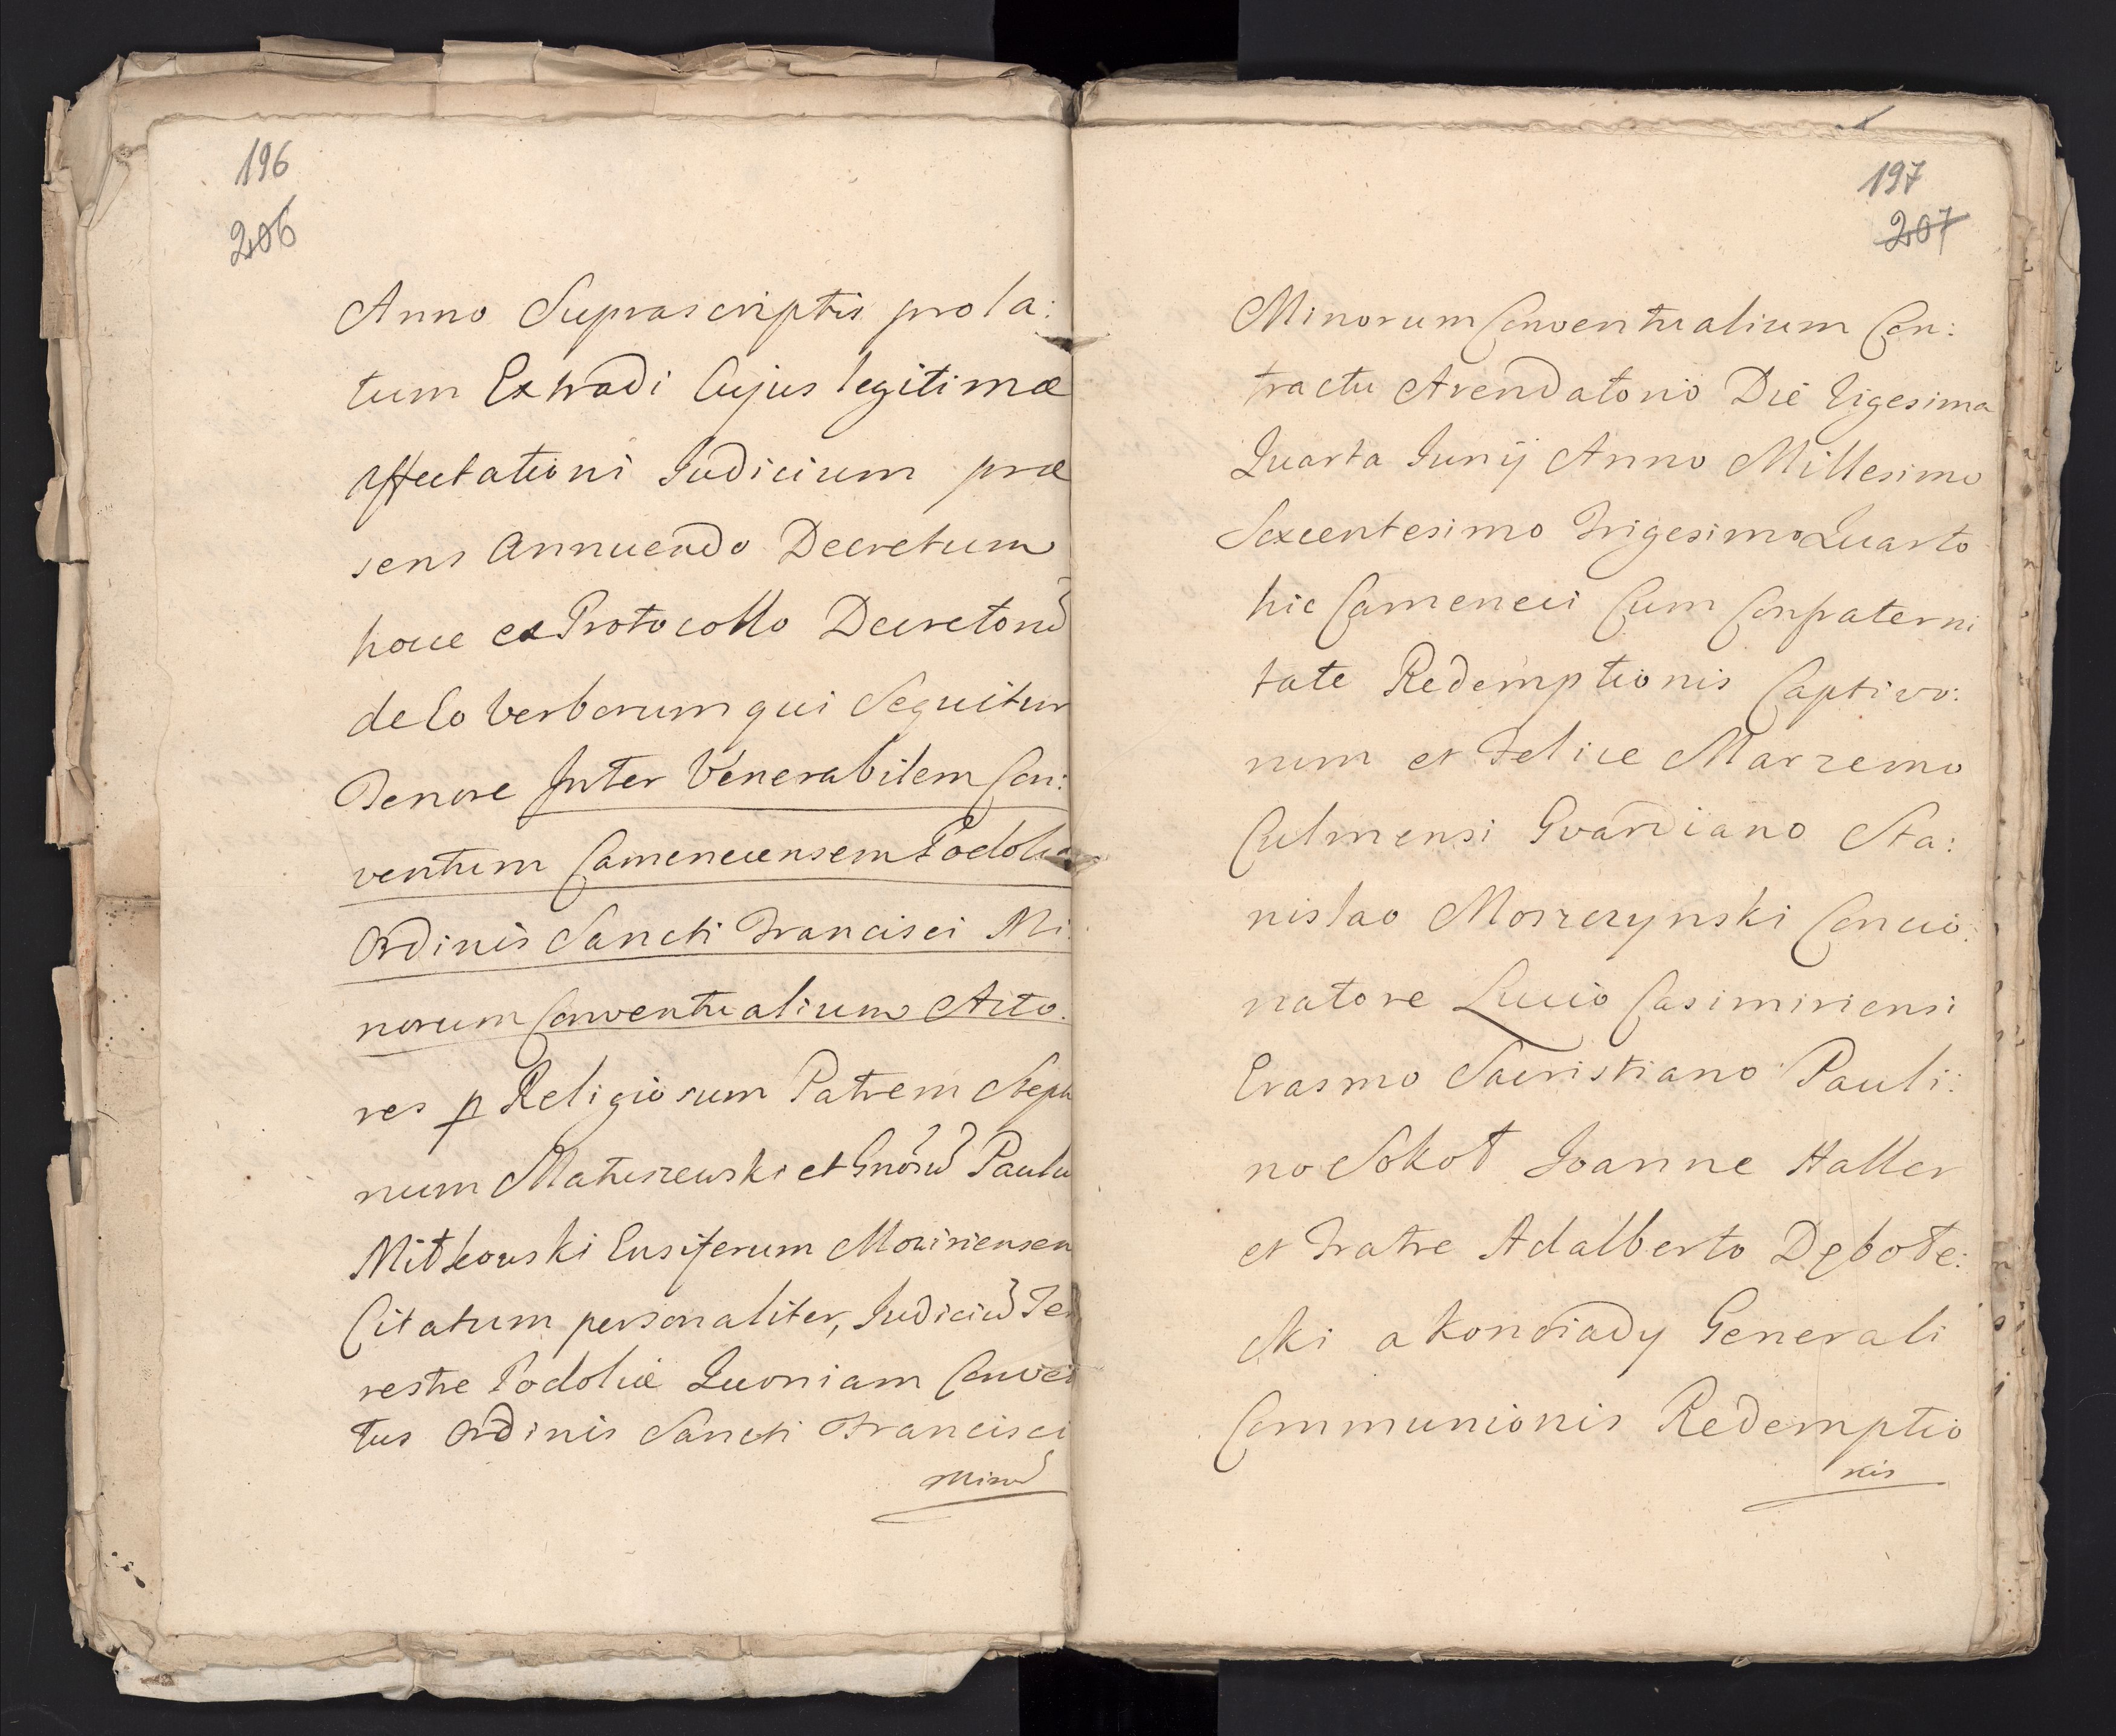 196
206
Anno Suprascriptis prola:
tum Extradi Cujus legitimæ
affectationi Judicium præ
sens Annuendo Decretum
hocce ex Protocollo Decretorũ
de Eo Verborum qui Sequitur
Tenore Inter Venerabilem Con:
ventum Camenecensem Podoliæ
Ordinis Sancti Francisci Mi
norum Conventualium Acto.
res p Religiosum Patrem Steph
num Matuszewski et Gnõsũ Paulu
Mitkowski Ensiferum Moziriensem
Citatum personaliter, Judiciũ Ter
restre Podoliæ Quoniam Conven
tus Ordinis Sancti Francisci
Minorũ
197
207
Minorum Conventualium Con:
tractu Arendatorio Die Vigesima
Quarta Junij Anno Millesimo
Sexcentesimo Trigesimo Quarto
hic Cameneci Cum Confraterni
tate Redemptionis Captivo:
rum et Felice Marzemo
Culmensi Gvardiano Sta:
nislao Moszczynski Concio:
natore Lucio Casimiriensi
Erasmo Sacristiano Pauli:
no Sokoł Joanne Haller
et Fratre Adalberto Dębołe:
cki a Konoiady Generali
Communionis Redemptio
nis